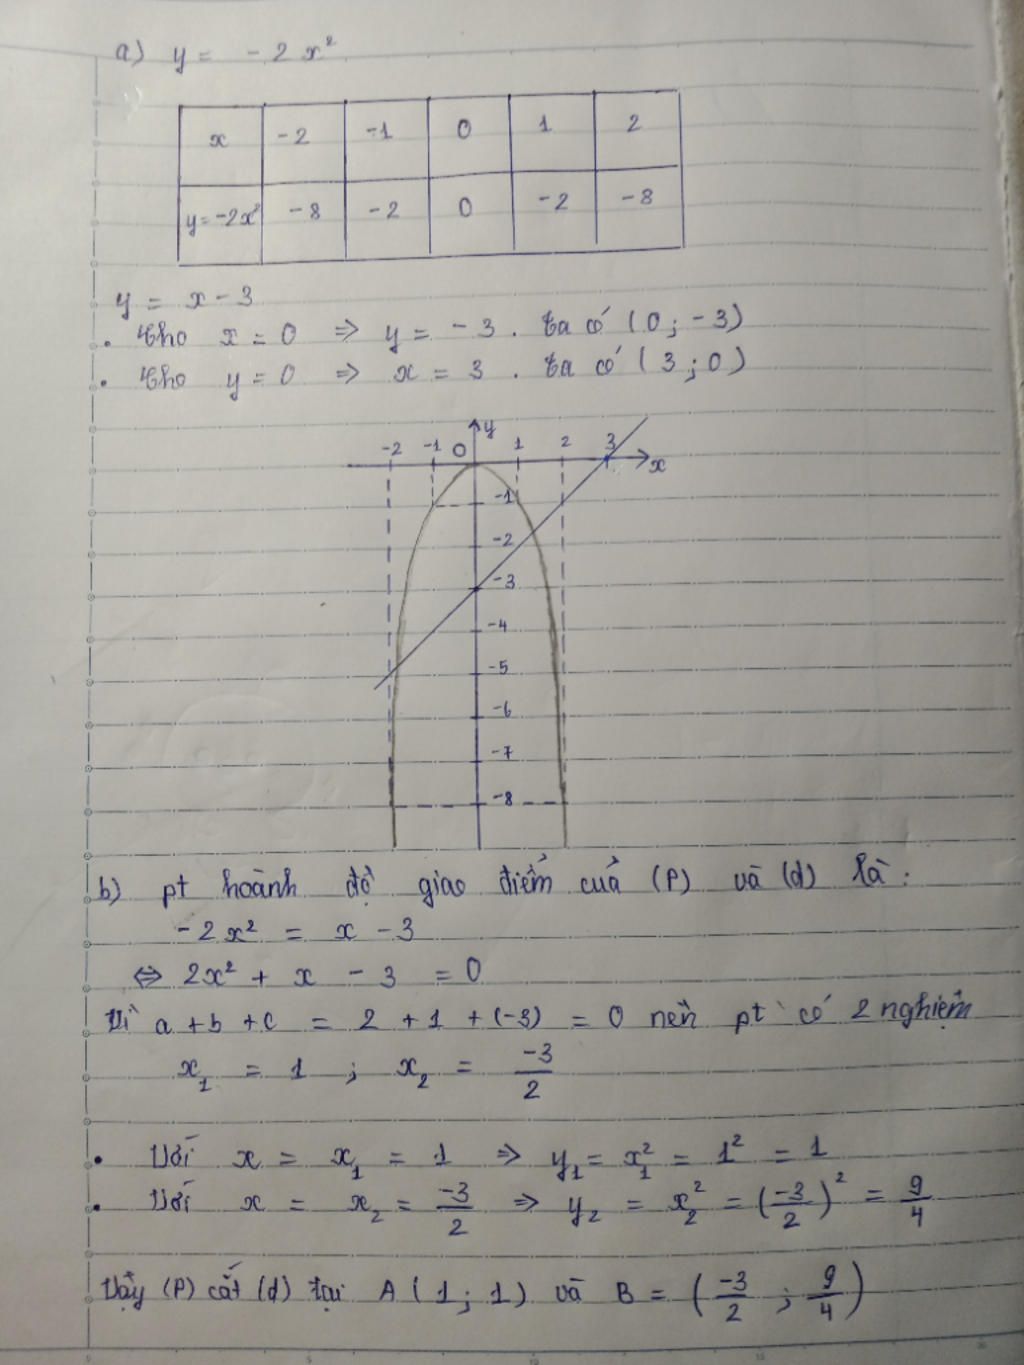 a) y = -2x²
x -2 -1 0 1 2
y=-2x² -8 -2 0 -2 -8
y = x - 3
• Cho x = 0 => y = -3. ta có (0; -3)
• Cho y = 0 => x = 3. ta có (3; 0)
y
-2 -1 O 1 2 3
x
-1
-2
-3
-4
-5
-6
-7
-8
b) pt hoành độ giao điểm của (P) và (d) là:
-2x² = x - 3
⇔ 2x² + x - 3 = 0
Vì a + b + c = 2 + 1 + (-3) = 0 nên pt có 2 nghiệm
x₁ = 1 ; x₂ = -3/2
• Với x = x₁ = 1 => y₁ = x₁² = 1² = 1
• Với x = x₂ = -3/2 => y₂ = x₂² = (-3/2)² = 9/4
Vậy (P) cắt (d) tại A(1; 1) và B = (-3/2 ; 9/4)